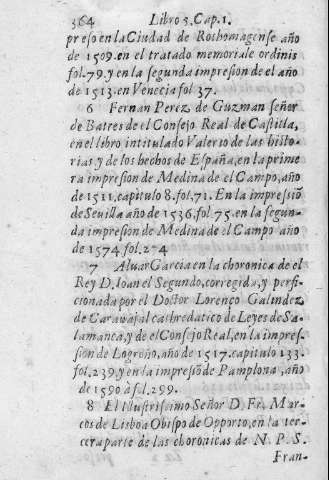 364 Libro 3. Cap. 1.
preso en la Ciudad de Rothomagense año
de 1509. en el tratado memoriale ordinis
fol. 79. y en la segunda impresion de el año
de 1513. en Venecia fol 37.
6 Fernan Perez de Guzman señor
de Batres de el Consejo Real de Castilla,
en el libro intitulado Valerio de las histo-
rias y de los hechos de España, en la prime
ra impresion de Medina de el Campo, año
de 1511. capitulo 8. fol. 71. En la impressiõ
de Sevilla año de 1536. fol. 75. en la segun-
da impresion de Medina de el Campo año
de 1574. fol. 274
7 Alvar Garcia en la choronica de el
Rey D. Ioan el Segundo, corregida, y perfi-
cionada por el Doctor Lorenço Galindez
de Carawajal cathredatico de Leyes de Sa-
lamanca, y de el Consejo Real, en la impres-
sion de Logroño, año de 1517. capitulo 133.
fol. 239. y en la impresiõ de Pamplona, año
de 1590 à fol. 299.
8 El Illustrissimo Señor D. Fr. Mar-
cos de Lisboa Obispo de Opporto, en la ter-
cera parte de las choronicas de N. P. S.
Fran-